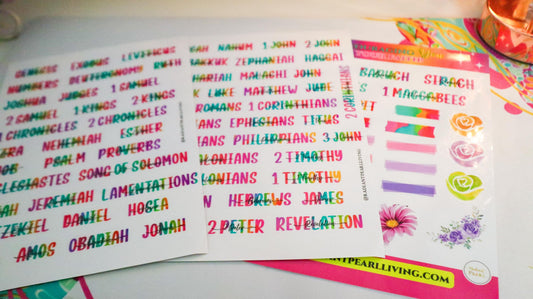 GENESIS EXODUS LEVITICUS
NUMBERS DEUTERONOMY RUTH
JOSHUA JUDGES 1 SAMUEL
2 SAMUEL 1 KINGS 2 KINGS
CHRONICLES 2 CHRONICLES
ZRA NEHEMIAH ESTHER
OB PSALM PROVERBS
CLESIASTES SONG OF SOLOMON
AH JEREMIAH LAMENTATIONS
ZEKIEL DANIEL HOSEA
AMOS OBADIAH JONAH
@RADIANTPEARLLIVING
AH NAHUM 1 JOHN 2 JOHN
BAKKUK ZEPHANIAH HAGGAI
HARIAH MALACHI JOHN
K LUKE MATTHEW JUDE
ROMANS 1 CORINTHIANS
IANS EPHESIANS TITUS
ANS PHILIPPIANS 3 JOHN
LONIANS 2 TIMOTHY
LONIANS 1 TIMOTHY
N HEBREWS JAMES
2 PETER REVELATION
2 CORINTHIANS
@RADIANTPEARLLIVING
BARUCH SIRACH
1 MACCABEES
ANTPEARLLIVING.COM